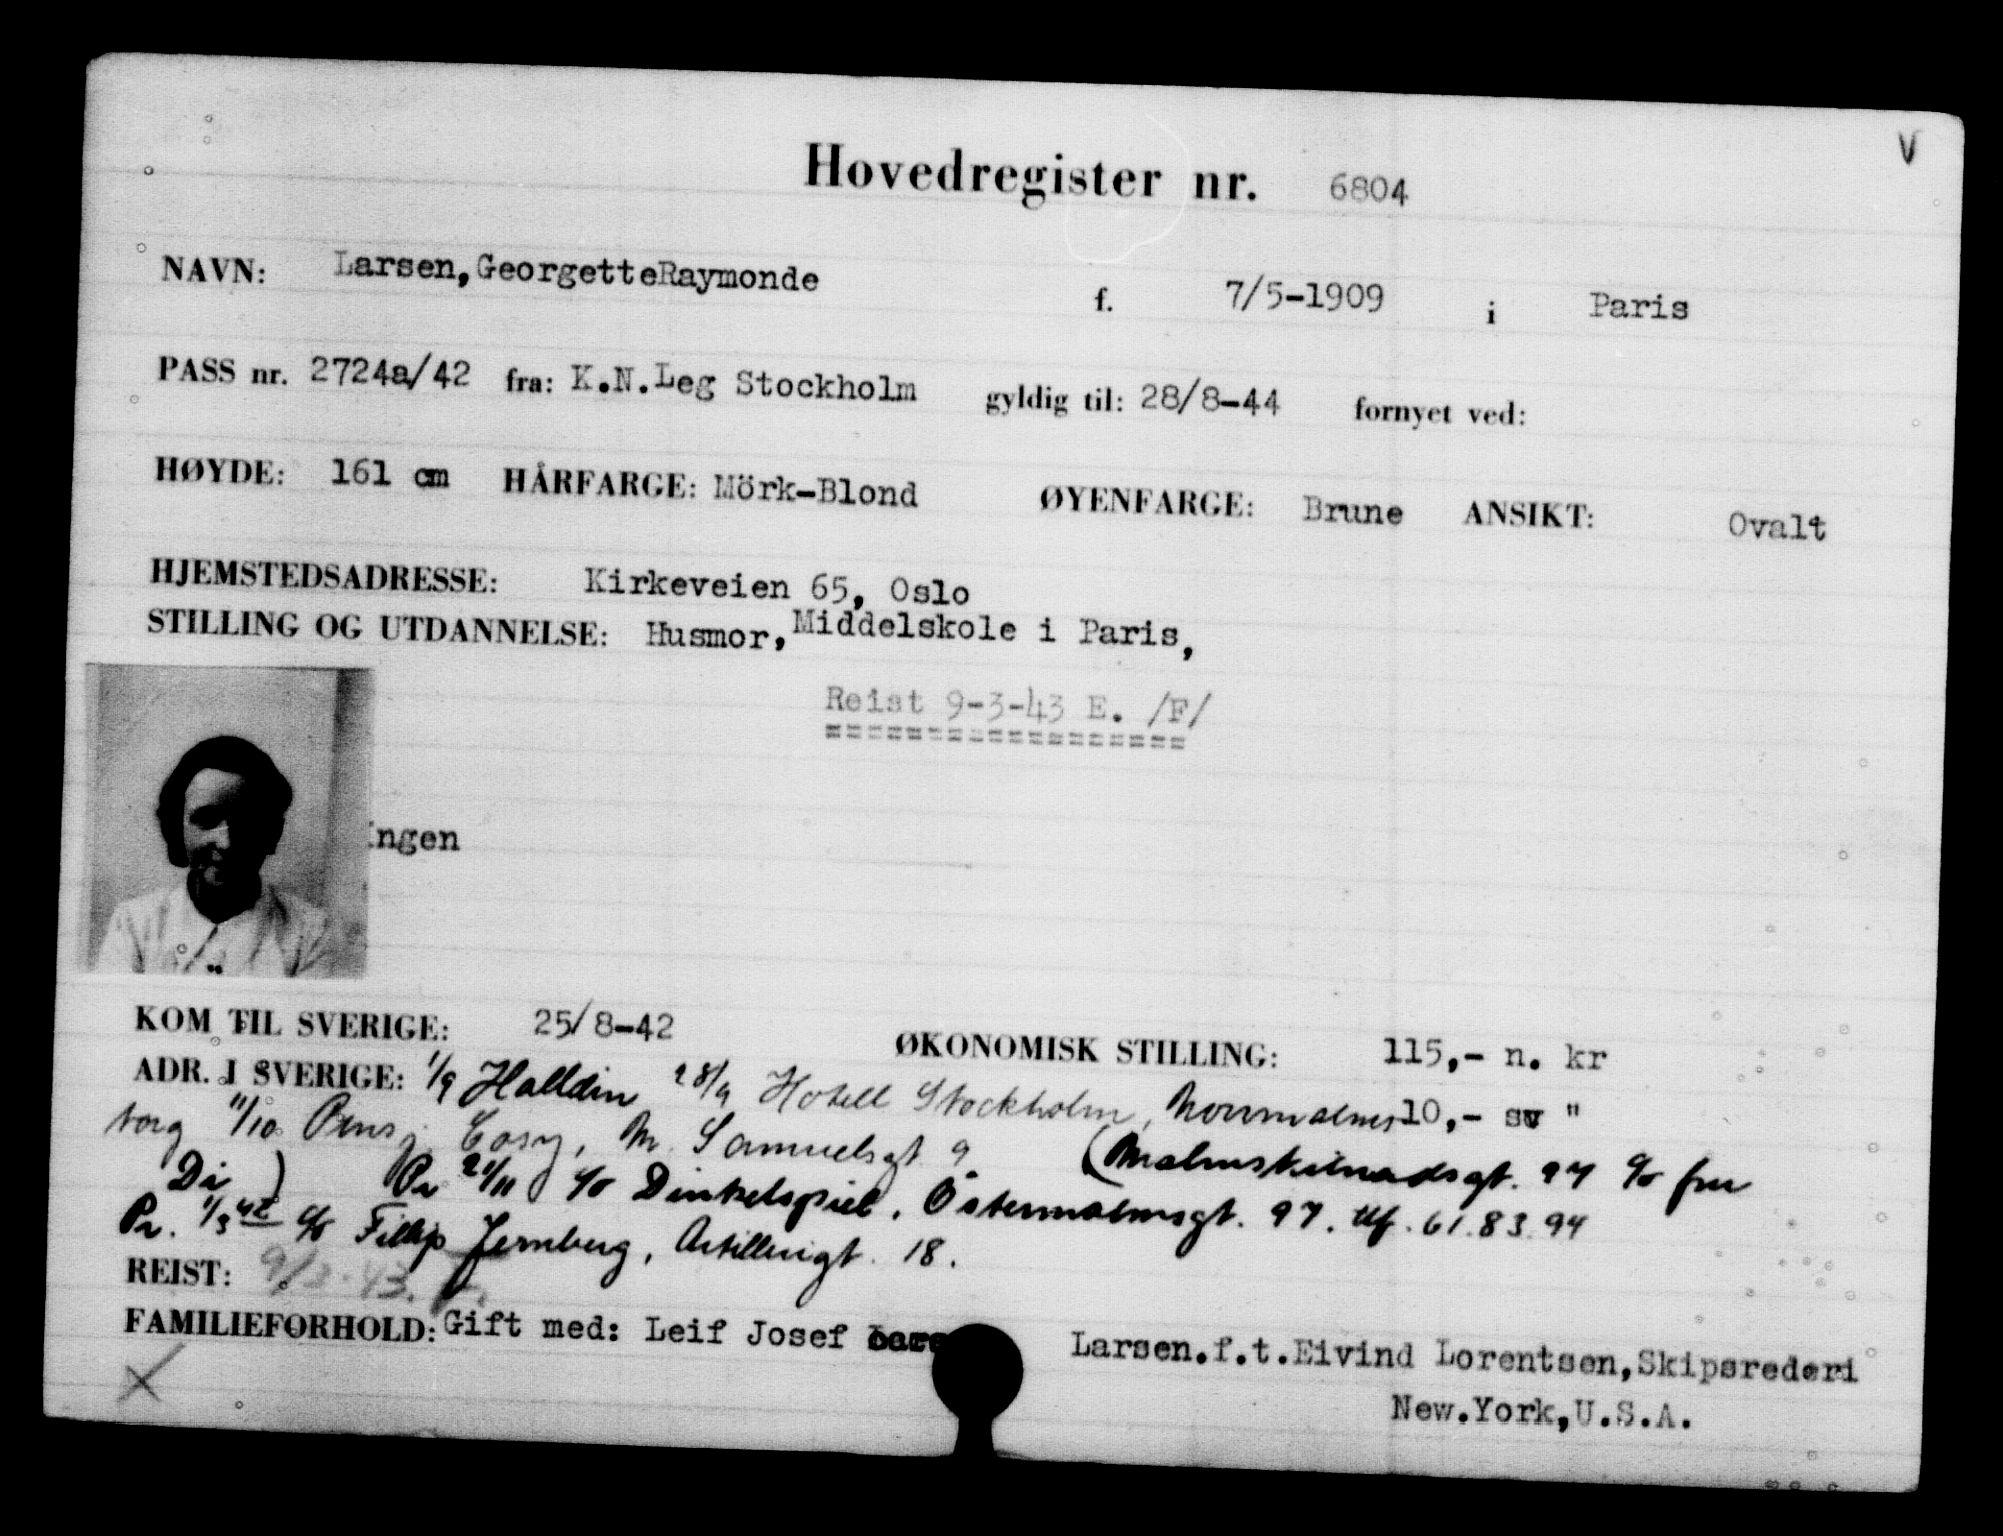 V
Hovedregister nr. 6804
NAVN: Larsen, GeorgetteRaymonde f. 7/5-1909 i Paris
PASS nr. 2724a/42 fra: K.N.Leg Stockholm gyldig til: 28/8-44 fornyet ved:
HØYDE: 161 cm HÅRFARGE: Mörk-Blond ØYENFARGE: Brune ANSIKT: Ovalt
HJEMSTEDSADRESSE: Kirkeveien 65, Oslo
STILLING OG UTDANNELSE: Husmor, Middelskole i Paris,
Reist 9-3-43 E. /F/
==================
Ingen
KOM TIL SVERIGE: 25/8-42 ØKONOMISK STILLING: 115,- n. kr
ADR. I SVERIGE: 1/9 Halldin 28/9 Hotell Stockholm, Norrmalms 10,- sv "
torg 11/10 Pensj. Cosy, M. Samuelsgt 9 (Malmskilnadsgt. 97 c/o fru
Di ) Pr 21/11 c/o Dinkelspiel, Östermalmsgt. 97. tlf. 61.83.94
Pr. 1/3 42 c/o Fillip Jernberg, Artillerigt. 18.
REIST: 9/3-43.
FAMILIEFORHOLD: Gift med: Leif Josef Larsen.f.t.Eivind Lorentsen,Skipsrederi
New.York,U.S.A.